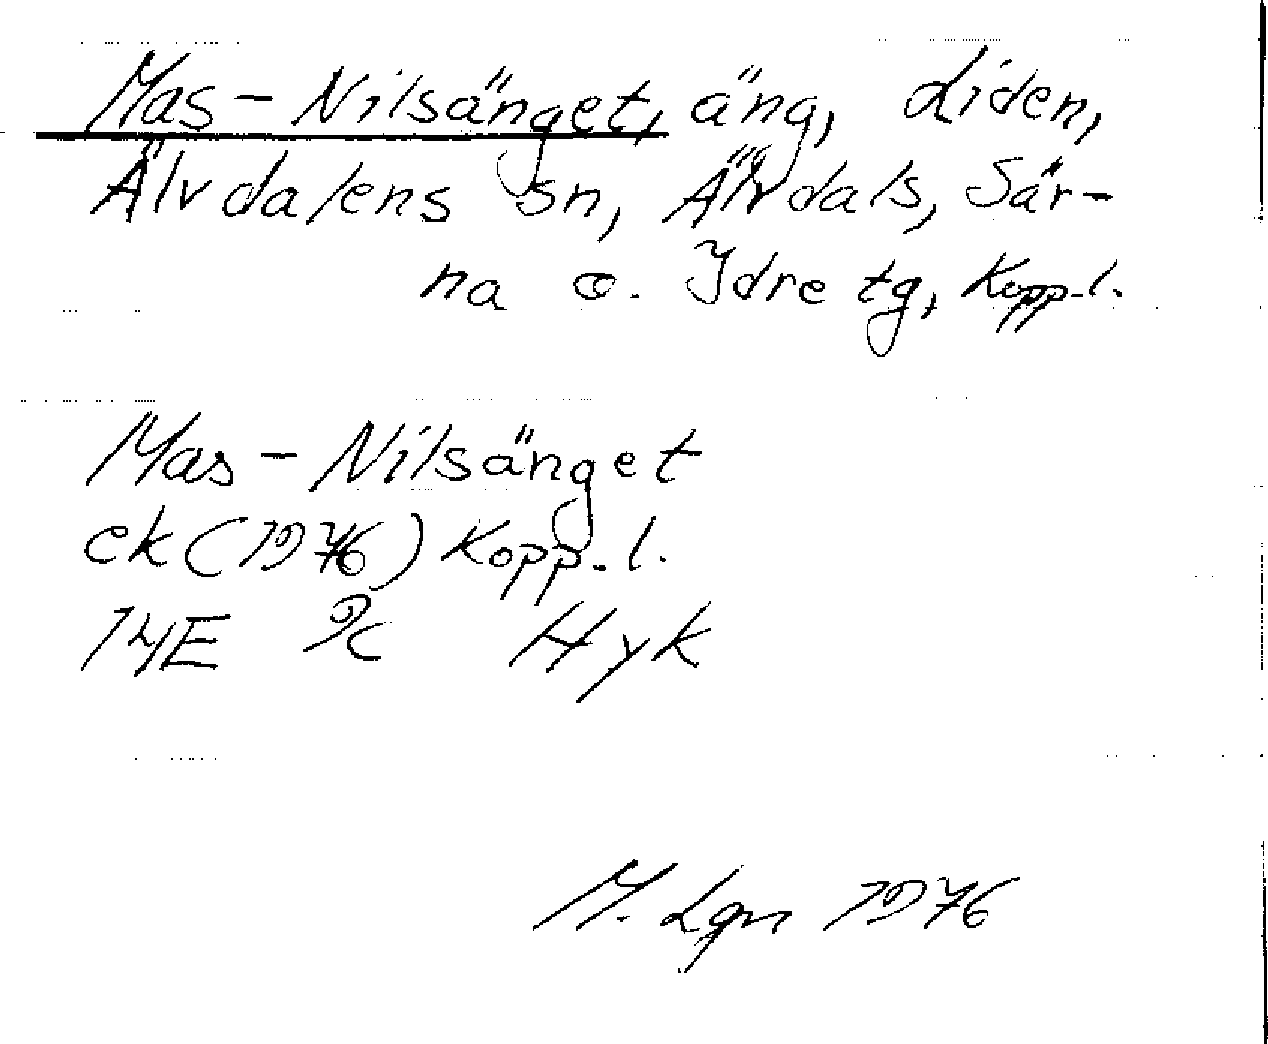 Mas-Nilsänget, äng, Liden,
Älvdalens sn, Älvdals, Sär-
na o. Idre tg, Kopp.l.
Mas-Nilsänget
ek (1976) Kopp.l.
14E 9c Hyk
M. Lgn 1976